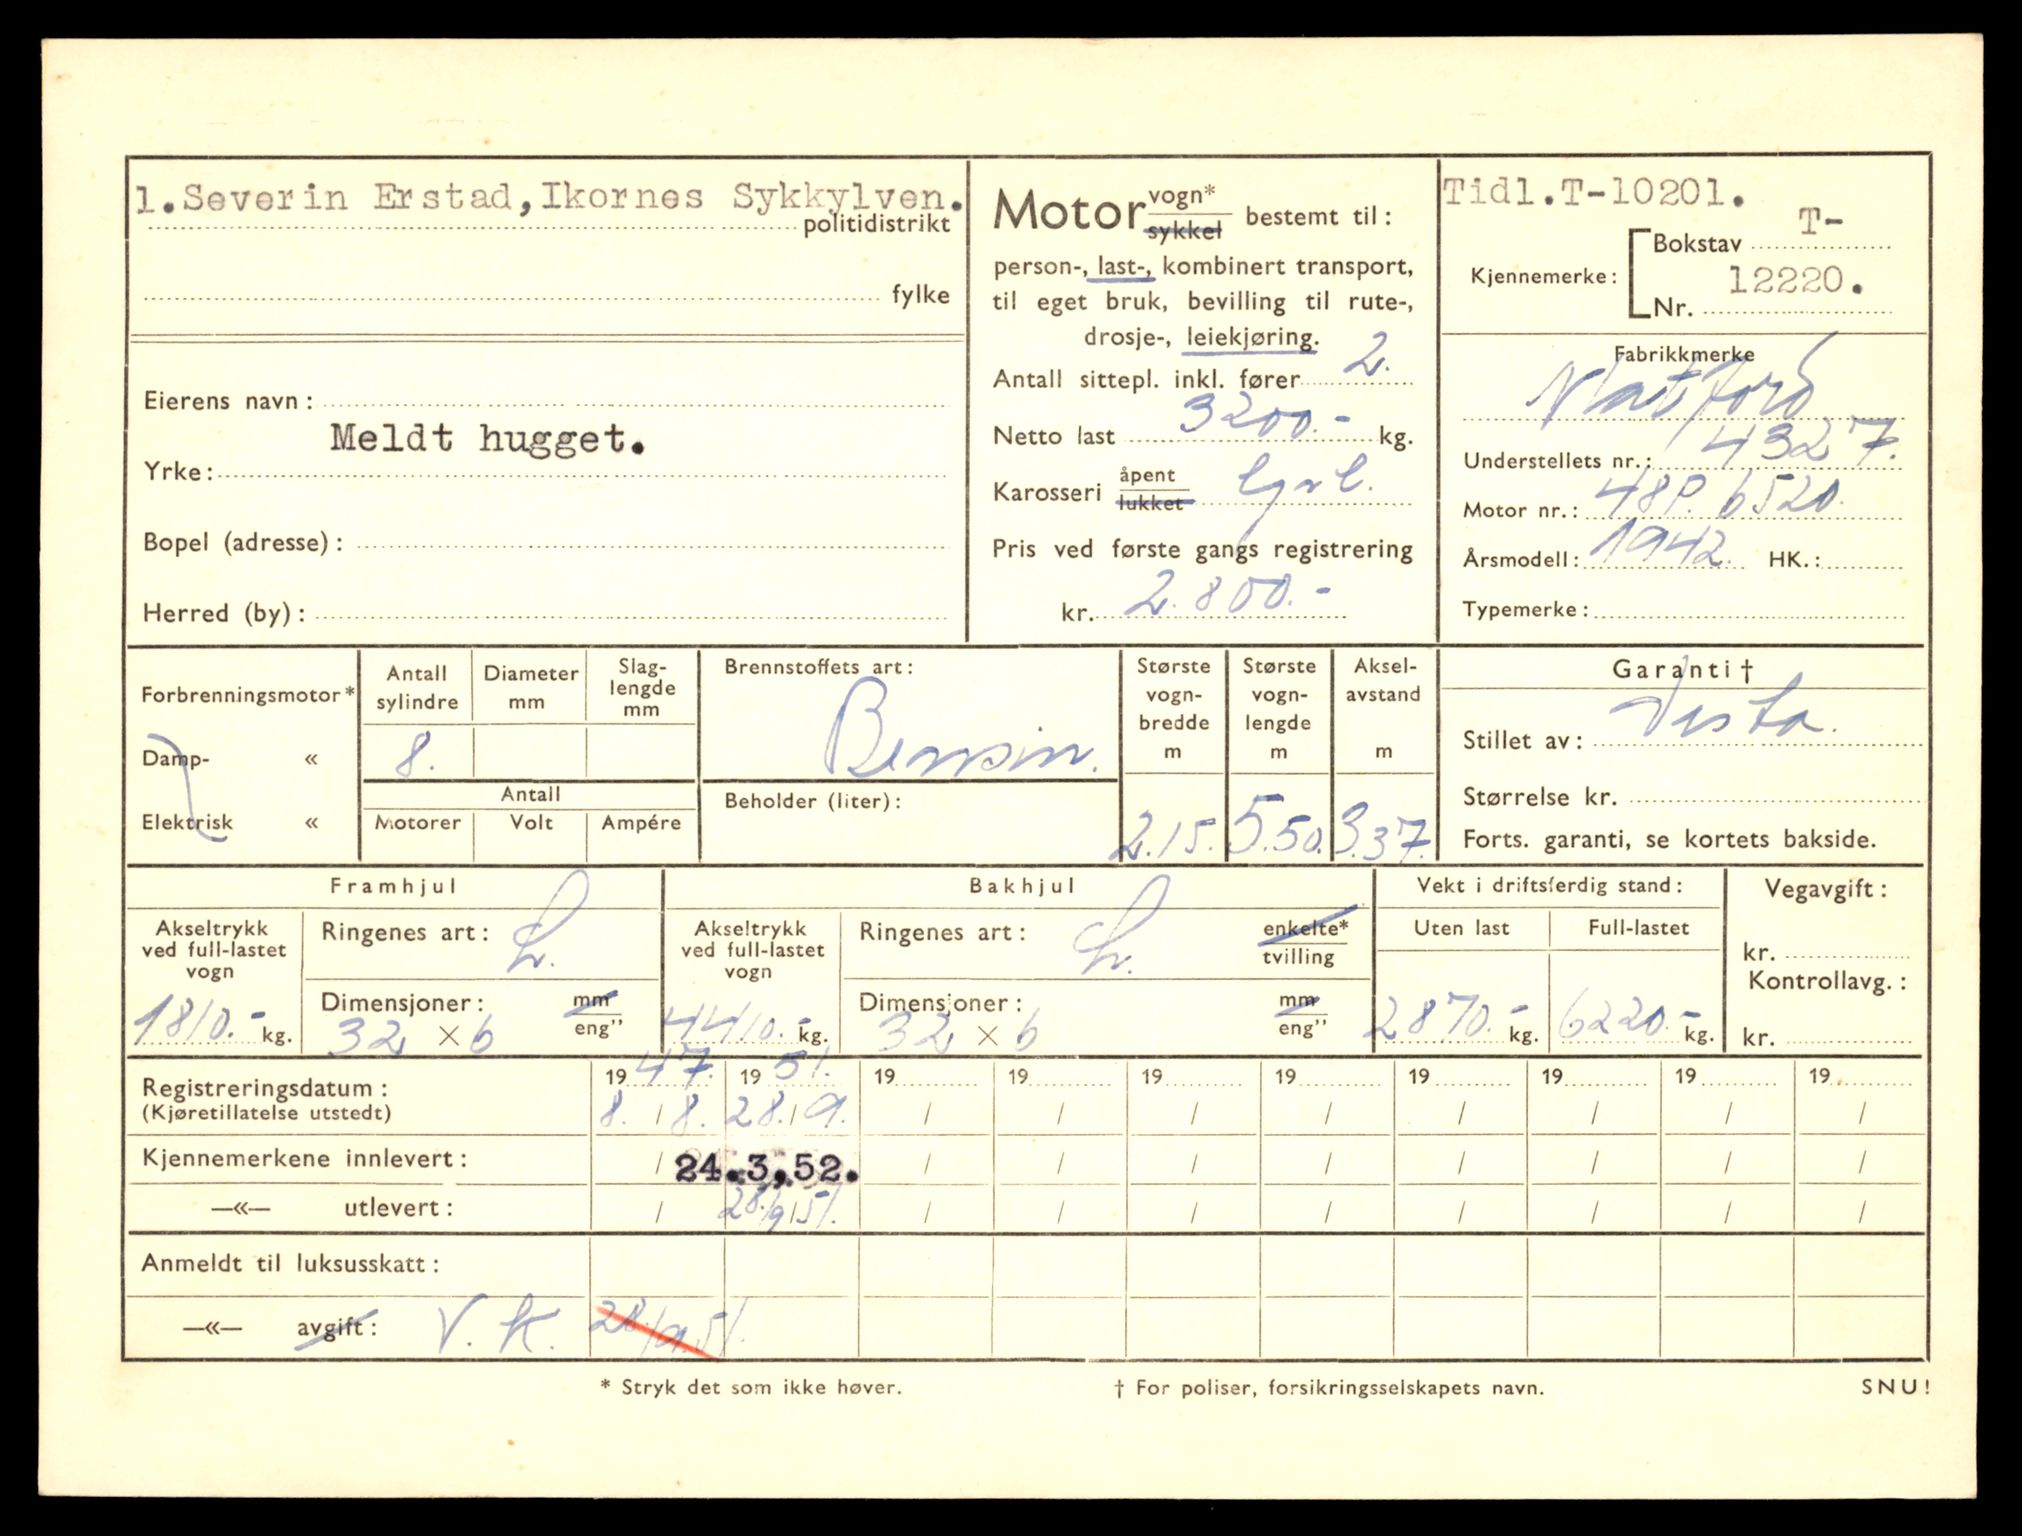 1. Severin Erstad, Ikornes Sykkylven.
politidistrikt
fylke
Eierens navn:
Meldt hugget.
Yrke:
Bopel (adresse):
Herred (by):
Motor vogn* sykkel bestemt til:
person-, last-, kombinert transport,
til eget bruk, bevilling til rute-,
drosje-, leiekjøring.
Antall sittepl. inkl. fører 2.
Netto last 3200.- kg.
Karosseri åpent lukket
Pris ved første gangs registrering
kr. 2.800.-
Tidl. T-10201.
Kjennemerke: Bokstav T-
Nr. 12220.
Fabrikkmerke
Understellets nr.: 4327.
Motor nr.: 48P. 6520.
Årsmodell: 1942. HK.:
Typemerke:
Forbrenningsmotor*
Damp- «
Elektrisk «
Antall sylindre
Diameter mm
Slag-lengde mm
8.
Antall
Motorer Volt Ampére
Brennstoffets art:
Bensin.
Beholder (liter):
Største vogn-bredde m
2.15.
Største vogn-lengde m
5.50.
Aksel-avstand m
3.37.
Garanti †
Stillet av: Vesta.
Størrelse kr.
Forts. garanti, se kortets bakside.
Framhjul
Akseltrykk ved full-lastet vogn
1810.- kg.
Ringenes art: L.
Dimensjoner: mm eng”
32 × 6
Bakhjul
Akseltrykk ved full-lastet vogn
4410.- kg.
Ringenes art: L. enkelte* tvilling
Dimensjoner: mm eng”
32 × 6
Vekt i driftsferdig stand:
Uten last Full-lastet
2870.- kg. 6220.- kg.
Vegavgift:
kr.
Kontrollavg.:
kr.
Registreringsdatum: 19 47. 19 51. 19 19 19 19 19 19 19 19
(Kjøretillatelse utstedt) 8. / 8. 28. / 9. / / / / / / / /
Kjennemerkene innlevert: / 24.3.52. / / / / / / / /
—«— utlevert: / 28/9/51. / / / / / / / /
Anmeldt til luksusskatt:
—«— avgift: V. K. 28/9.51.
* Stryk det som ikke høver.
† For poliser, forsikringsselskapets navn.
SNU!